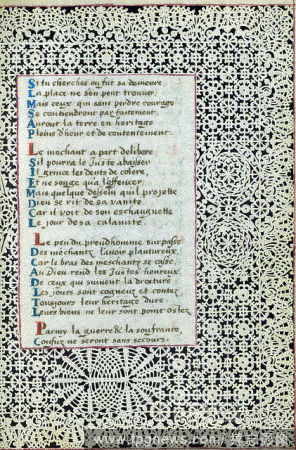 Si tu cherches ou fut sa demeure
La place ne son peut trouver,
Mais ceux qui sans perdre courage
Se contiendront par faitement,
Auront la terre en heritage
Pleins d'heur et de contentement.
Le mechant a part delibere
S'il pourra le Juste abaysser
Il grince les dents de colere,
Et ne songe qua l'offencer
Mais quelque dessein quil projette
Dieu se rit de sa vanité
Car il voit de son eschauguette
Le jour de sa calamité.
Le peu du preudhomme surpasse
Des mechantz lavoir plantureux,
Car le bras des meschants se casse
Dieu rend les Justes heureux
De ceux qui suivent la droiture
Les jours sont cogneuz et contez
Tousjours leur heritage dure
Leurs biens ne leur sont point ostez
Parmy la guerre & la soufrance,
Confuz ne seront sans secours.
www.fpgnews.com